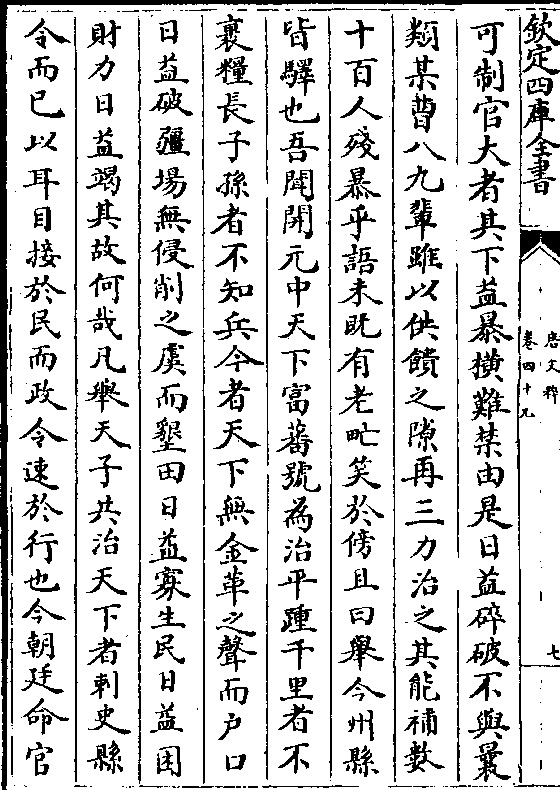 欽定四庫全書
唐文粹
卷四十九
七
可制官大者其下益暴橫難禁由是日益碎破不與曩
類某曹八九輩雖以供饋之隙再三力治之其能補數
十百人殘暴乎語未既有老甿笑於傍且曰舉今州縣
皆驛也吾聞開元中天下富蕃號為治平踵千里者不
裹糧長子孫者不知兵今者天下無金革之聲而户口
日益破疆場無侵削之虞而墾田日益寡生民日益困
財力日益竭其故何哉凡舉天子共治天下者刺史縣
令而已以耳目接於民而政令速於行也今朝廷命官